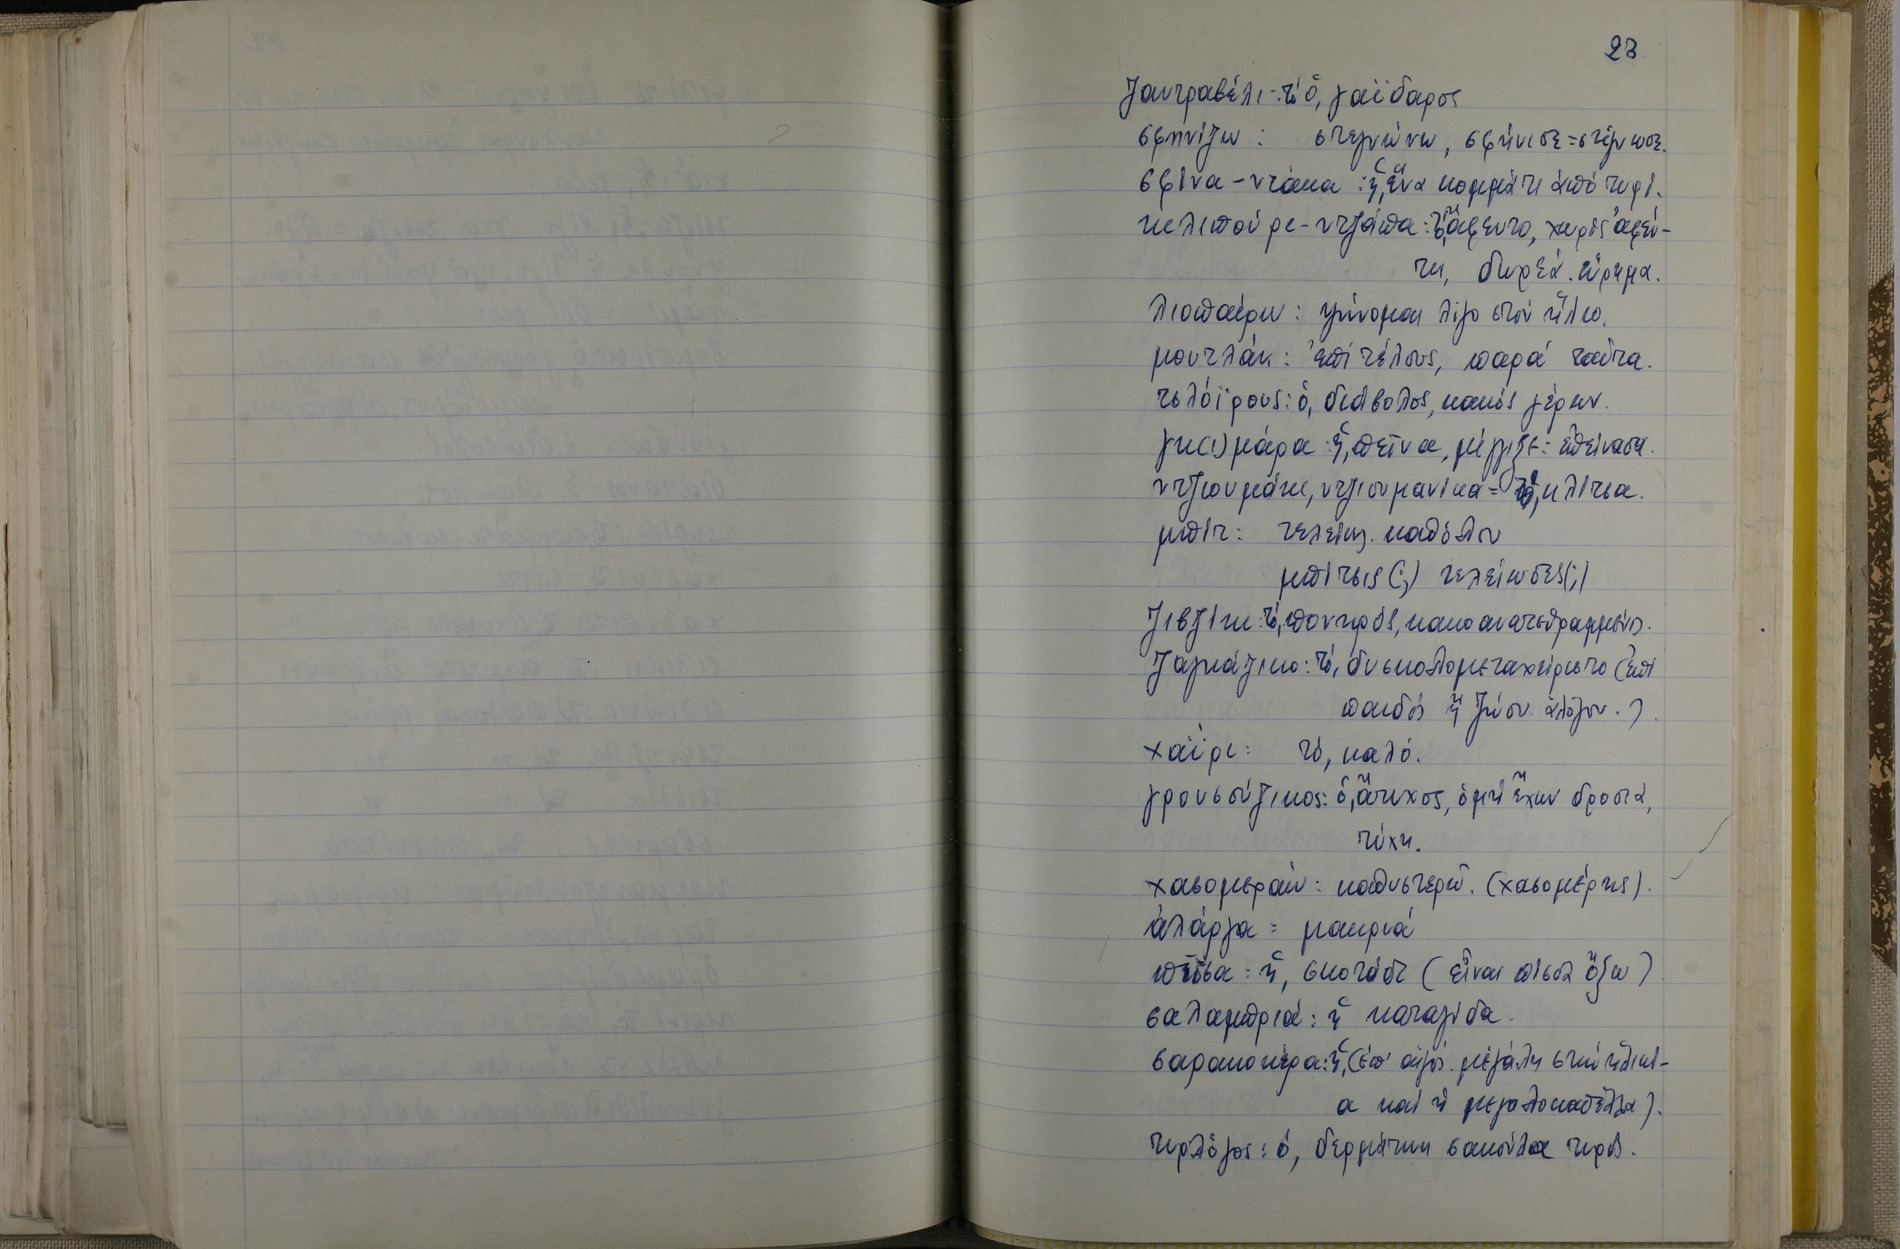 23
ζαντραβέλι: τὸ ὁ, γαϊδαρος
σφηνίζω: στεγνώνω, σφήνισε=στέγνωσε.
σφίνα-ντάκα: ἡ, ἕνα κομμάτι ἀπό τυρί.
κελεπούρι-ντζάπα: τό, ἄφευτο, χωρίς ἀφέν-
τη, δωρεά. εὕρημα.
λιοπαίρω: ψήνομαι λίγο στόν ἥλιο.
μουτλάκ: ἐπί τέλους, παρά ταῦτα.
τελόϊρους: ὁ, διάβολος, κακός γέρων.
γκ(ι)μάρα: ἡ, πεῖνα, ἐπείνασα.
ντζιουμάκι, ντζιουμανίκα= κλίτσα.
μπίτ: τελείως. καθόλου
μπίτσις(;) τελείωσες(;)
ζιβζίκι: τό, πονηρός, κακοαναπεθραμμένος.
ζαγκάζικο: τό, δυσκολομεταχείριστο (ἐπί
παιδός ἤ ζώου. ἀλόγου.)
χαΐρι: τό, καλό.
γρουσούζικος: ὁ, ἄτυχος, ὁ μή ἔχων δροσιά,
τύχη.
χασομεράω: καθυστερῶ. (χασομέρης).
ἀλάργα = μακριά
πίσσα: ἡ, σκοτάδι (εἶναι πίσσα ὄξω)
σαλαμπριά: ἡ καταιγίδα.
σαρακοκέρα: ἡ, (ἐπ' αἰγός. μεγάλη στήν ἡλικί-
α καί ἡ μεγαλοκαπέλα).
τυρλόγος: ὁ, δερμάτινη σακούλα τυροῦ.